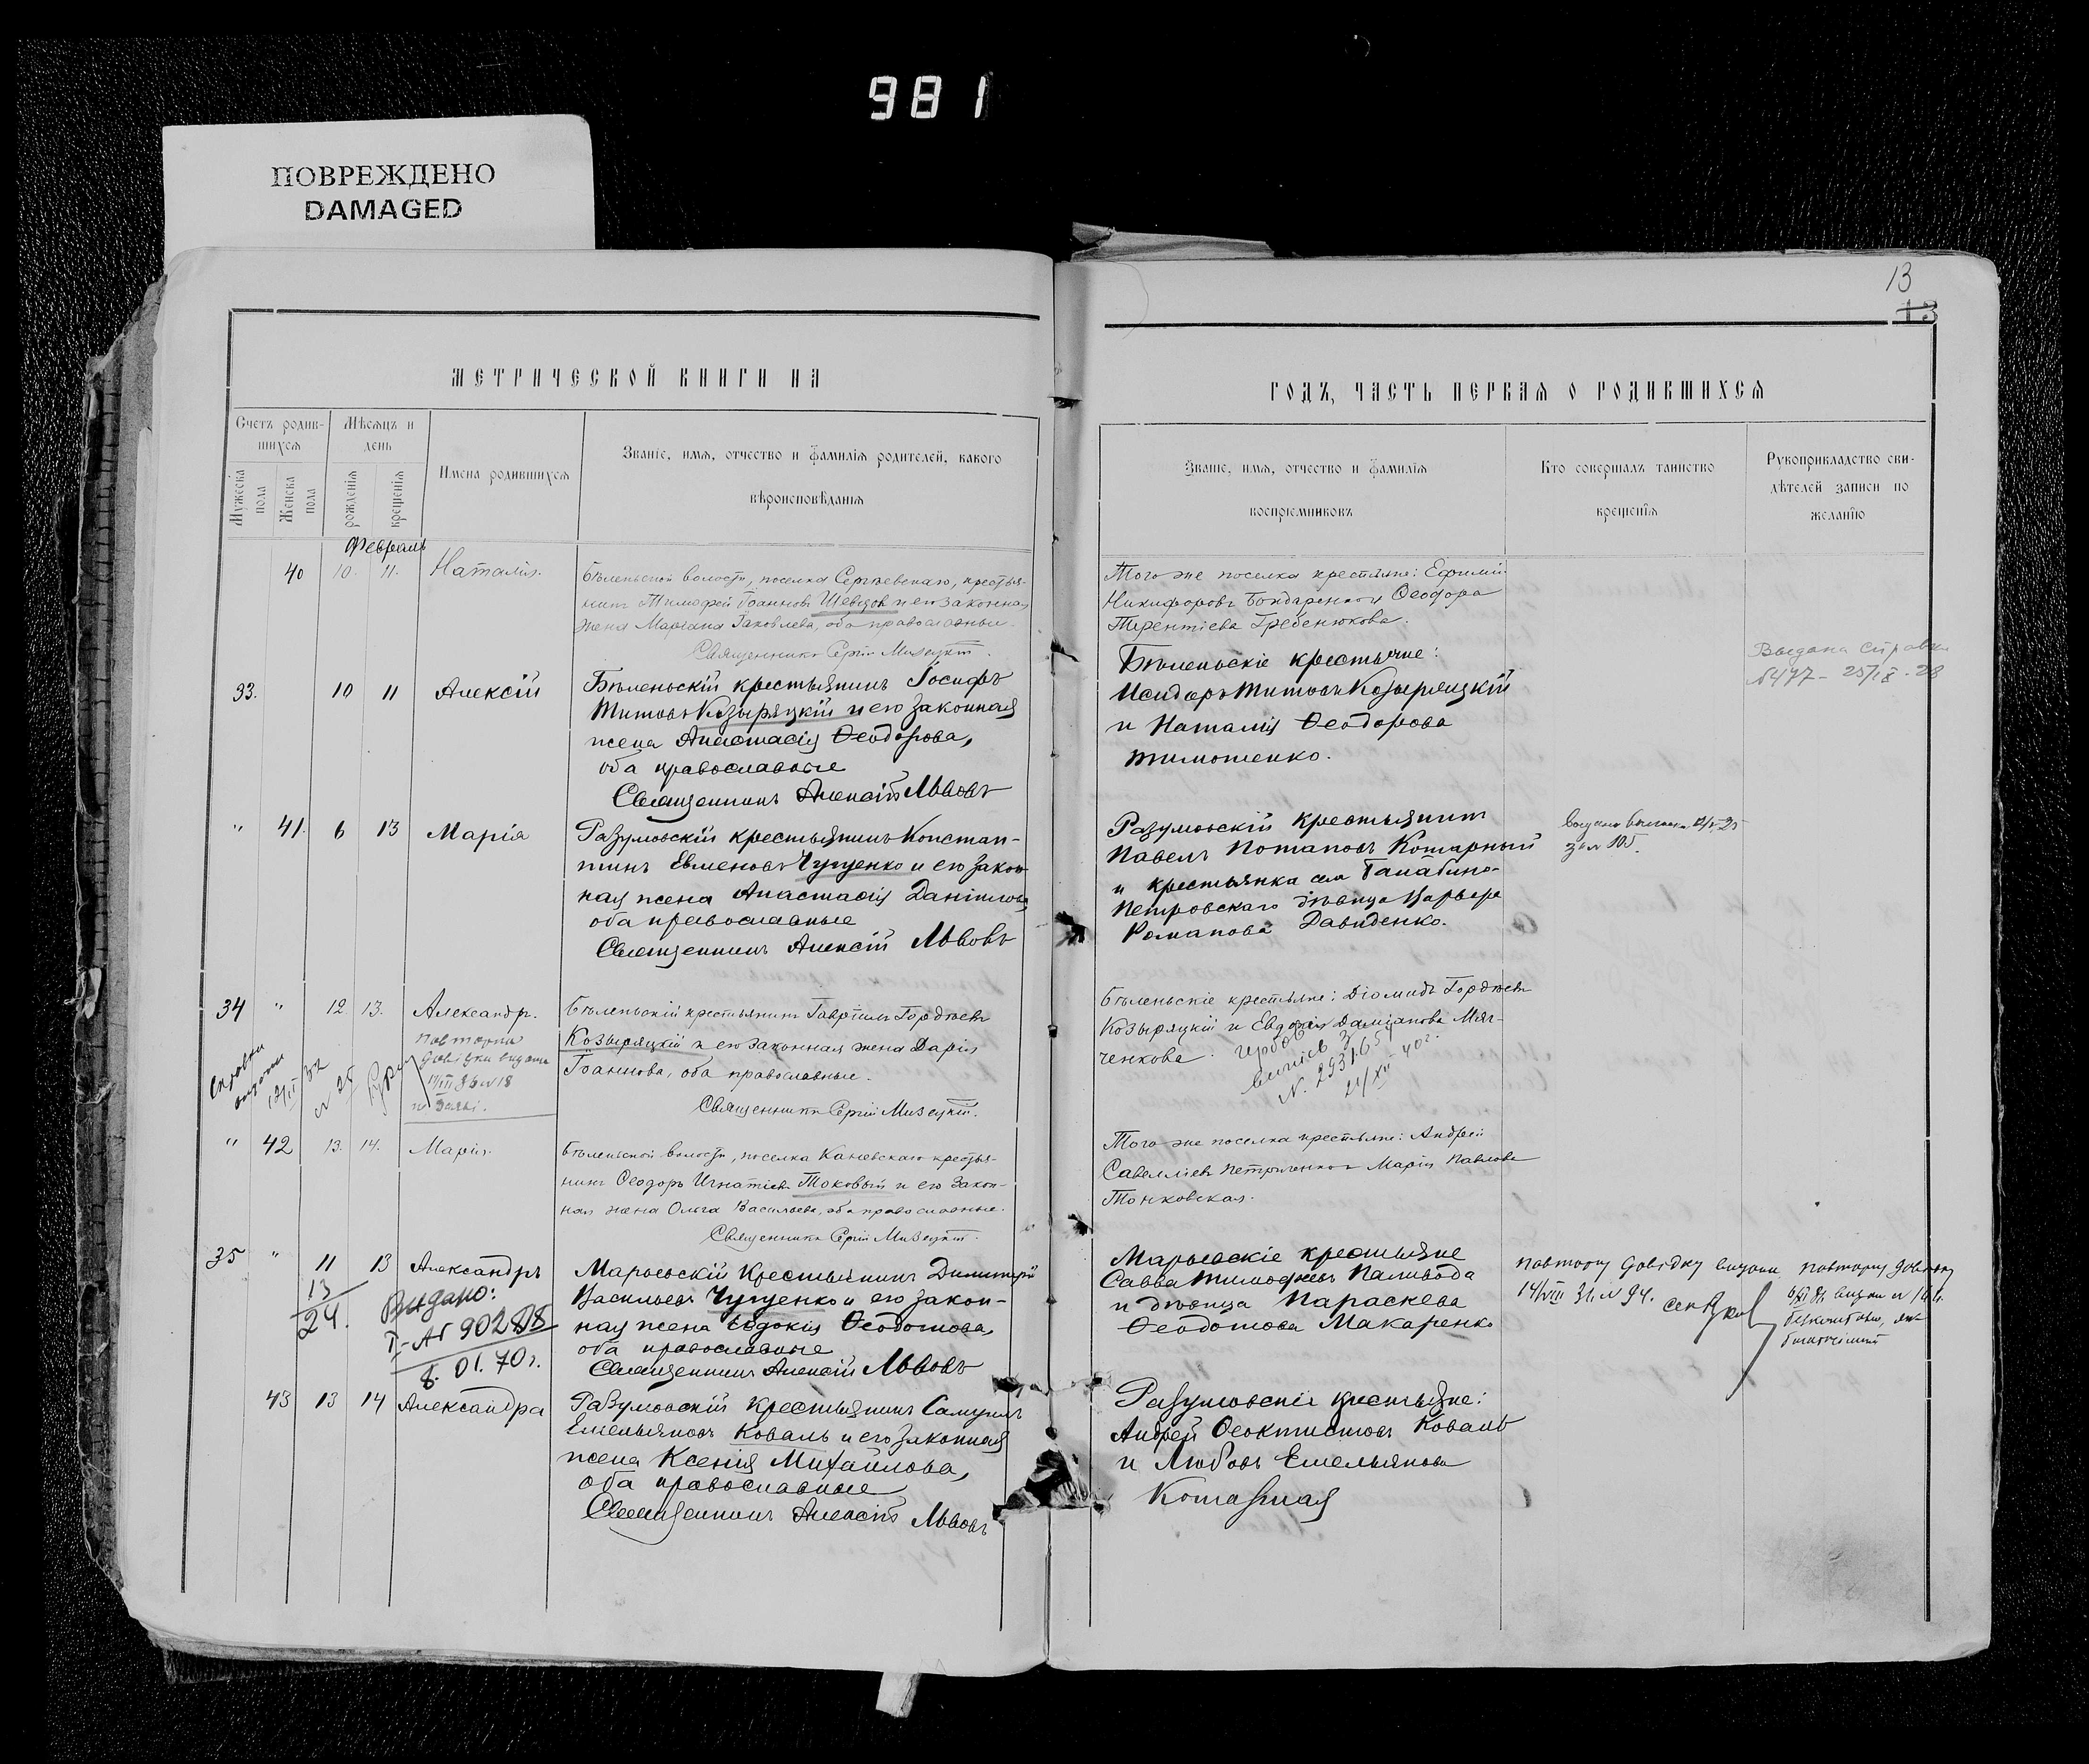 981
ПОВРЕЖДЕНО
DAMAGED
13
13
МЕТРИЧЕСКОЙ КНИГИ НА
ГОДЪ, ЧАСТЬ ПЕРВАЯ О РОДИВШИХСЯ
Счетъ родив-
шихся
Мужеска
пола
Женска
пола
Мѣсяцъ и
день
рожденія
крещенія
Имена родившихся
Званіе, имя, отчество и фамилія родителей, какого
вѣроисповѣданія
Званіе, имя, отчество и фамилія
воспріемниковъ
Кто совершалъ таинство
крещенія
Рукоприкладство сви-
дѣтелей записи по
желанію
Февраль
40 10. 11. Наталія.
Бѣленьской волости, поселка Сергѣевскаго, крестья-
нинъ Тимофей Іоанновъ Шевцов и его законная
жена Маріана Іаковлева, оба православные.
Священникъ Сергій Мизецкій.
Того же поселка крестьяне: Ефимій
Никифоровъ Бондаренко и Ѳеодора
Терентіева Гребенюкова.
33. 10 11 Алексій
Бѣленьскій крестьянинъ Іосифъ
Титовъ Козыряцкій и его законная
жена Анастасія Ѳеодорова,
оба православные
Священникъ Алексій Львовъ
Бѣленьскіе крестьяне:
Исидоръ Титовъ Козыряцкій
и Наталія Ѳеодорова
Тимошенко.
Выдана справка
№477 - 25/IX - 28
" 41. 6 13 Марія
Разумовскій крестьянинъ Констан-
тинъ Евменовъ Чугуенко и его закон-
ная жена Анастасія Даніилова
оба православные
Священникъ Алексій Львовъ
Разумовскій крестьянинъ
Павелъ Потаповъ Котарный
и крестьянка села
Петровскаго дѣвица Варвара
Романова Давиденко.
за № 105.
34 " 12. 13. Александръ.
Бѣленьскій крестьянинъ Гавріилъ Гордѣевъ
Козыряцкій и его законная жена Дарія
Іоаннова, оба православные.
Священникъ Сергій Мизецкій.
Бѣленьскіе крестьяне: Діомидъ Гордѣевъ
Козыряцкій и Евдокія Даміанова Мяч-
ченкова.
N. 293165
21/XII - 40г.
Справки
видана
12/II 32
№ 25
Повторна
довідка видана
17/III 36 № 18
" 42 13. 14. Марія.
Бѣленьской волости, поселка Каневскаго крестья-
нинъ Ѳеодоръ Игнатіевъ Токовый и его закон-
ная жена Ольга Васильева, оба православные.
Священникъ Сергій Мизецкій.
Того же поселка крестьяне: Андрей
Савелліевъ Петриченко и Марія Павлова
Тонковская.
35 " 11 13 Александръ
Марьевскій крестьянинъ Димитрій
Васильевъ Чугуенко и его закон-
ная жена Евдокія Ѳеодотова,
оба православные
Священникъ Алексій Львовъ
Марьевскіе крестьяне
Савва Тимофеевъ Паливода
и дѣвица Параскева
Ѳеодотова Макаренко
13
24.
Видано:
I-АГ 902
8.01.70г.
повторну довідку видано
14/VIII 31 № 94.
повторну довідку
43 13 14 Александра
Разумовскій крестьянинъ Самуилъ
Емельяновъ Коваль и его законная
жена Ксенія Михайлова,
оба православные
Священникъ Алексій Львовъ
Разумовскіе крестьяне:
Андрей Ѳеоктистовъ Коваль
и Любовь Емельянова
Котарная